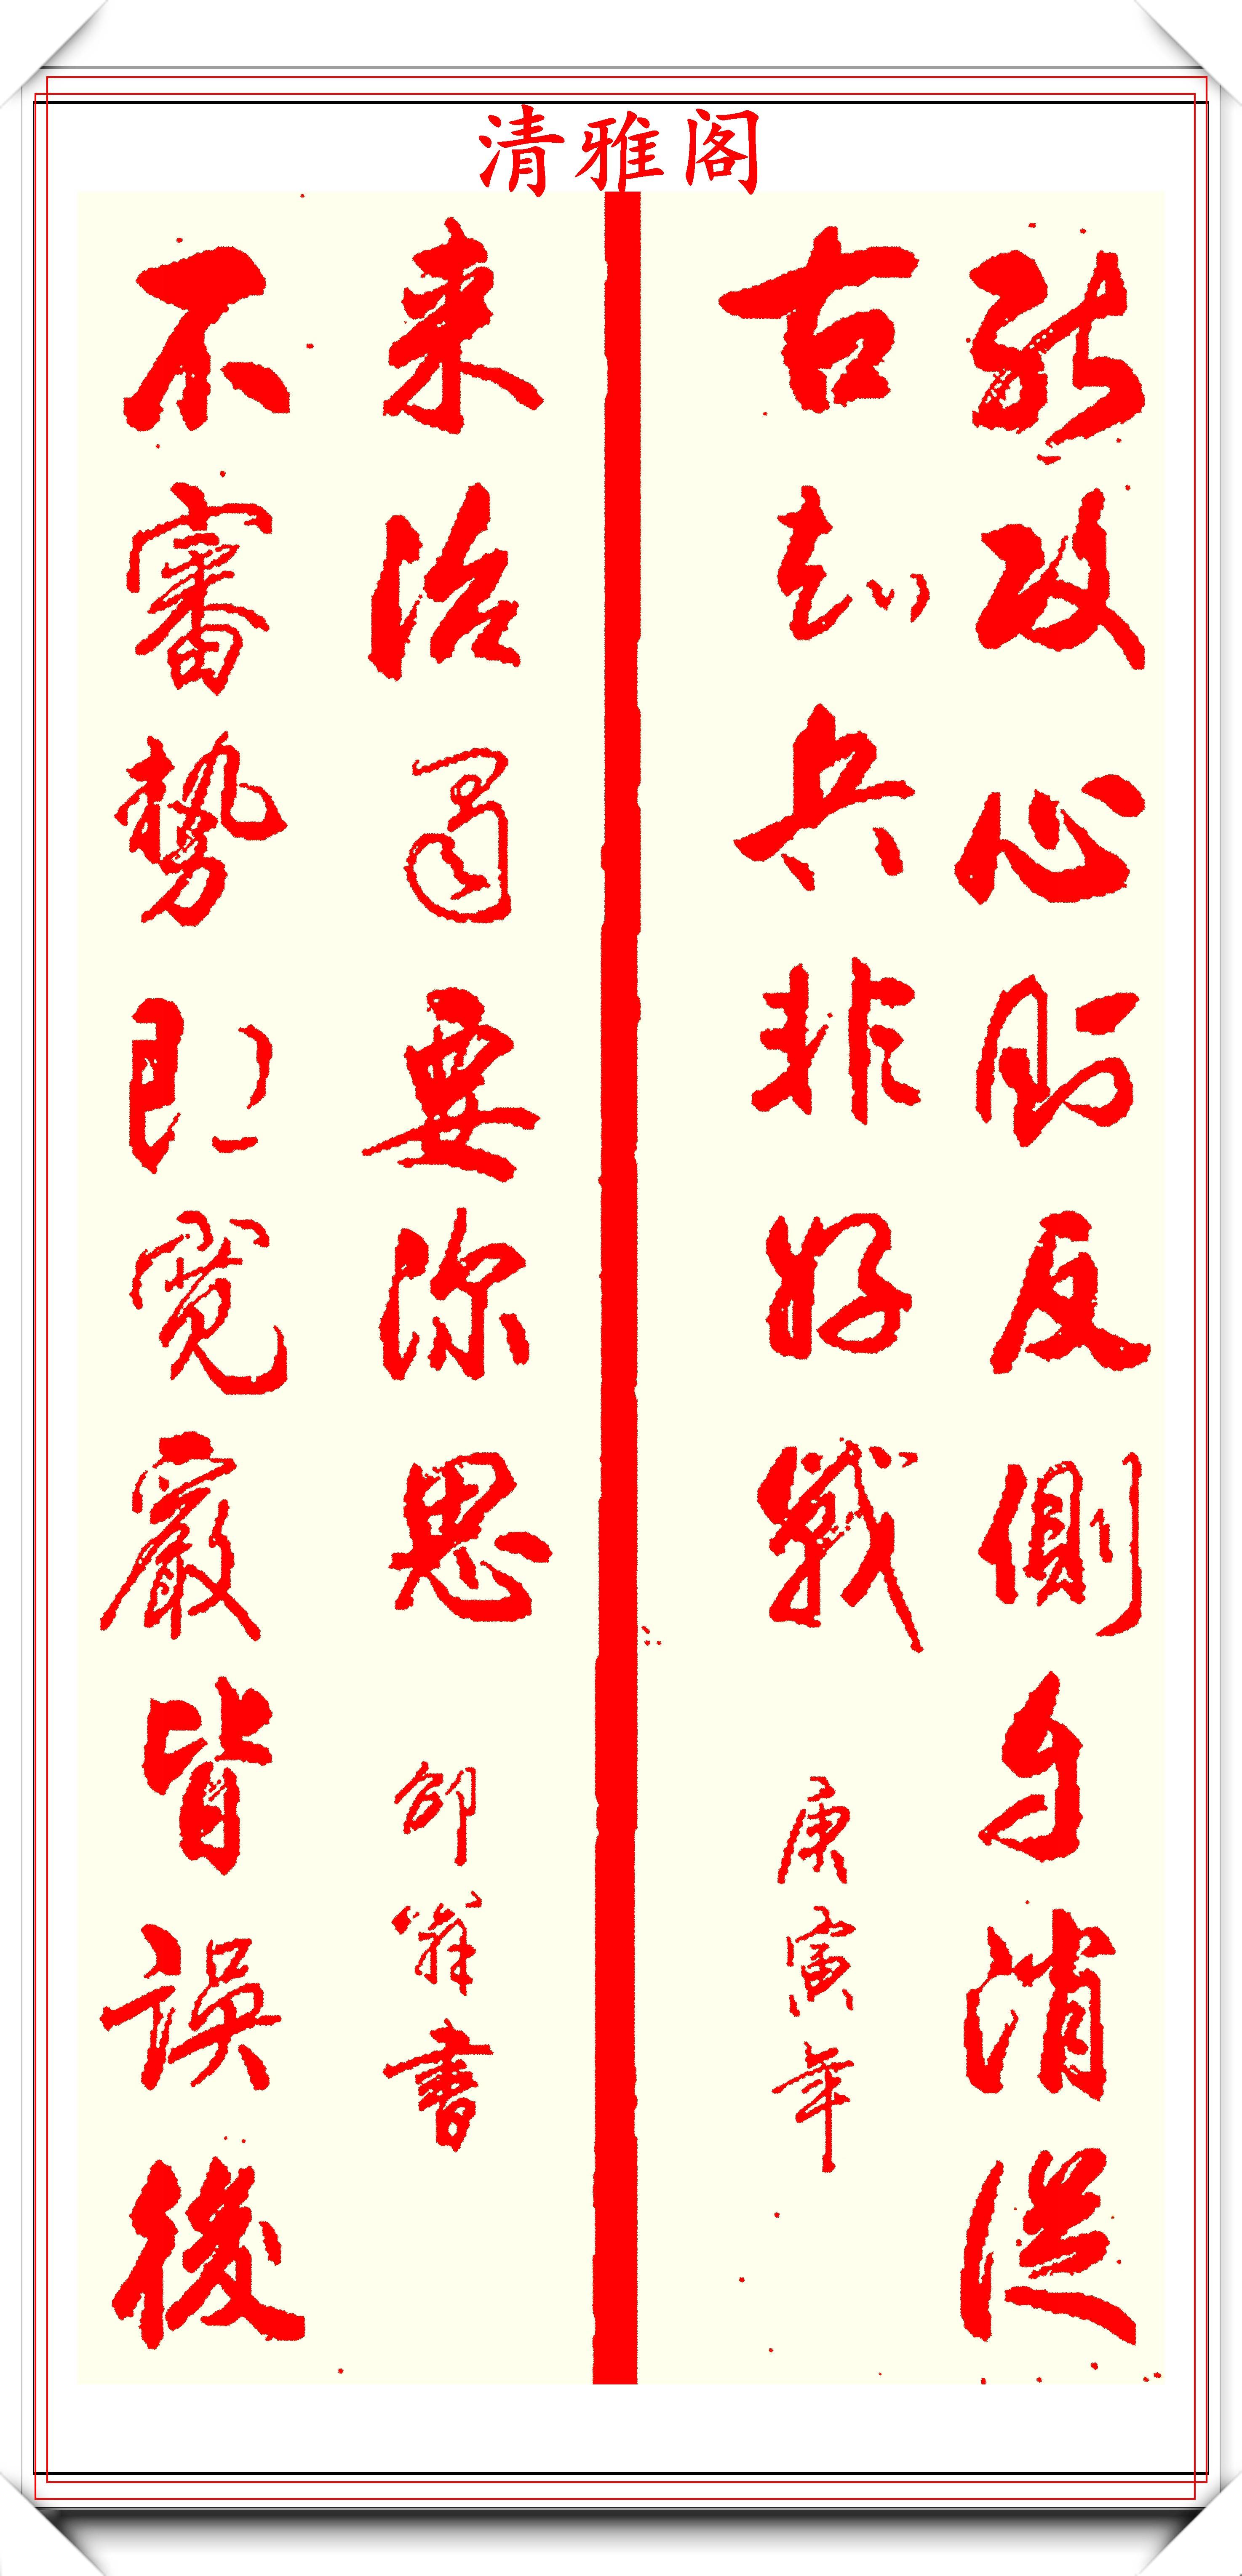 清雅阁
能攻心則反側自消從
古知兵非好戰
庚寅年
不審勢即寬嚴皆誤後
来治蜀要深思
書